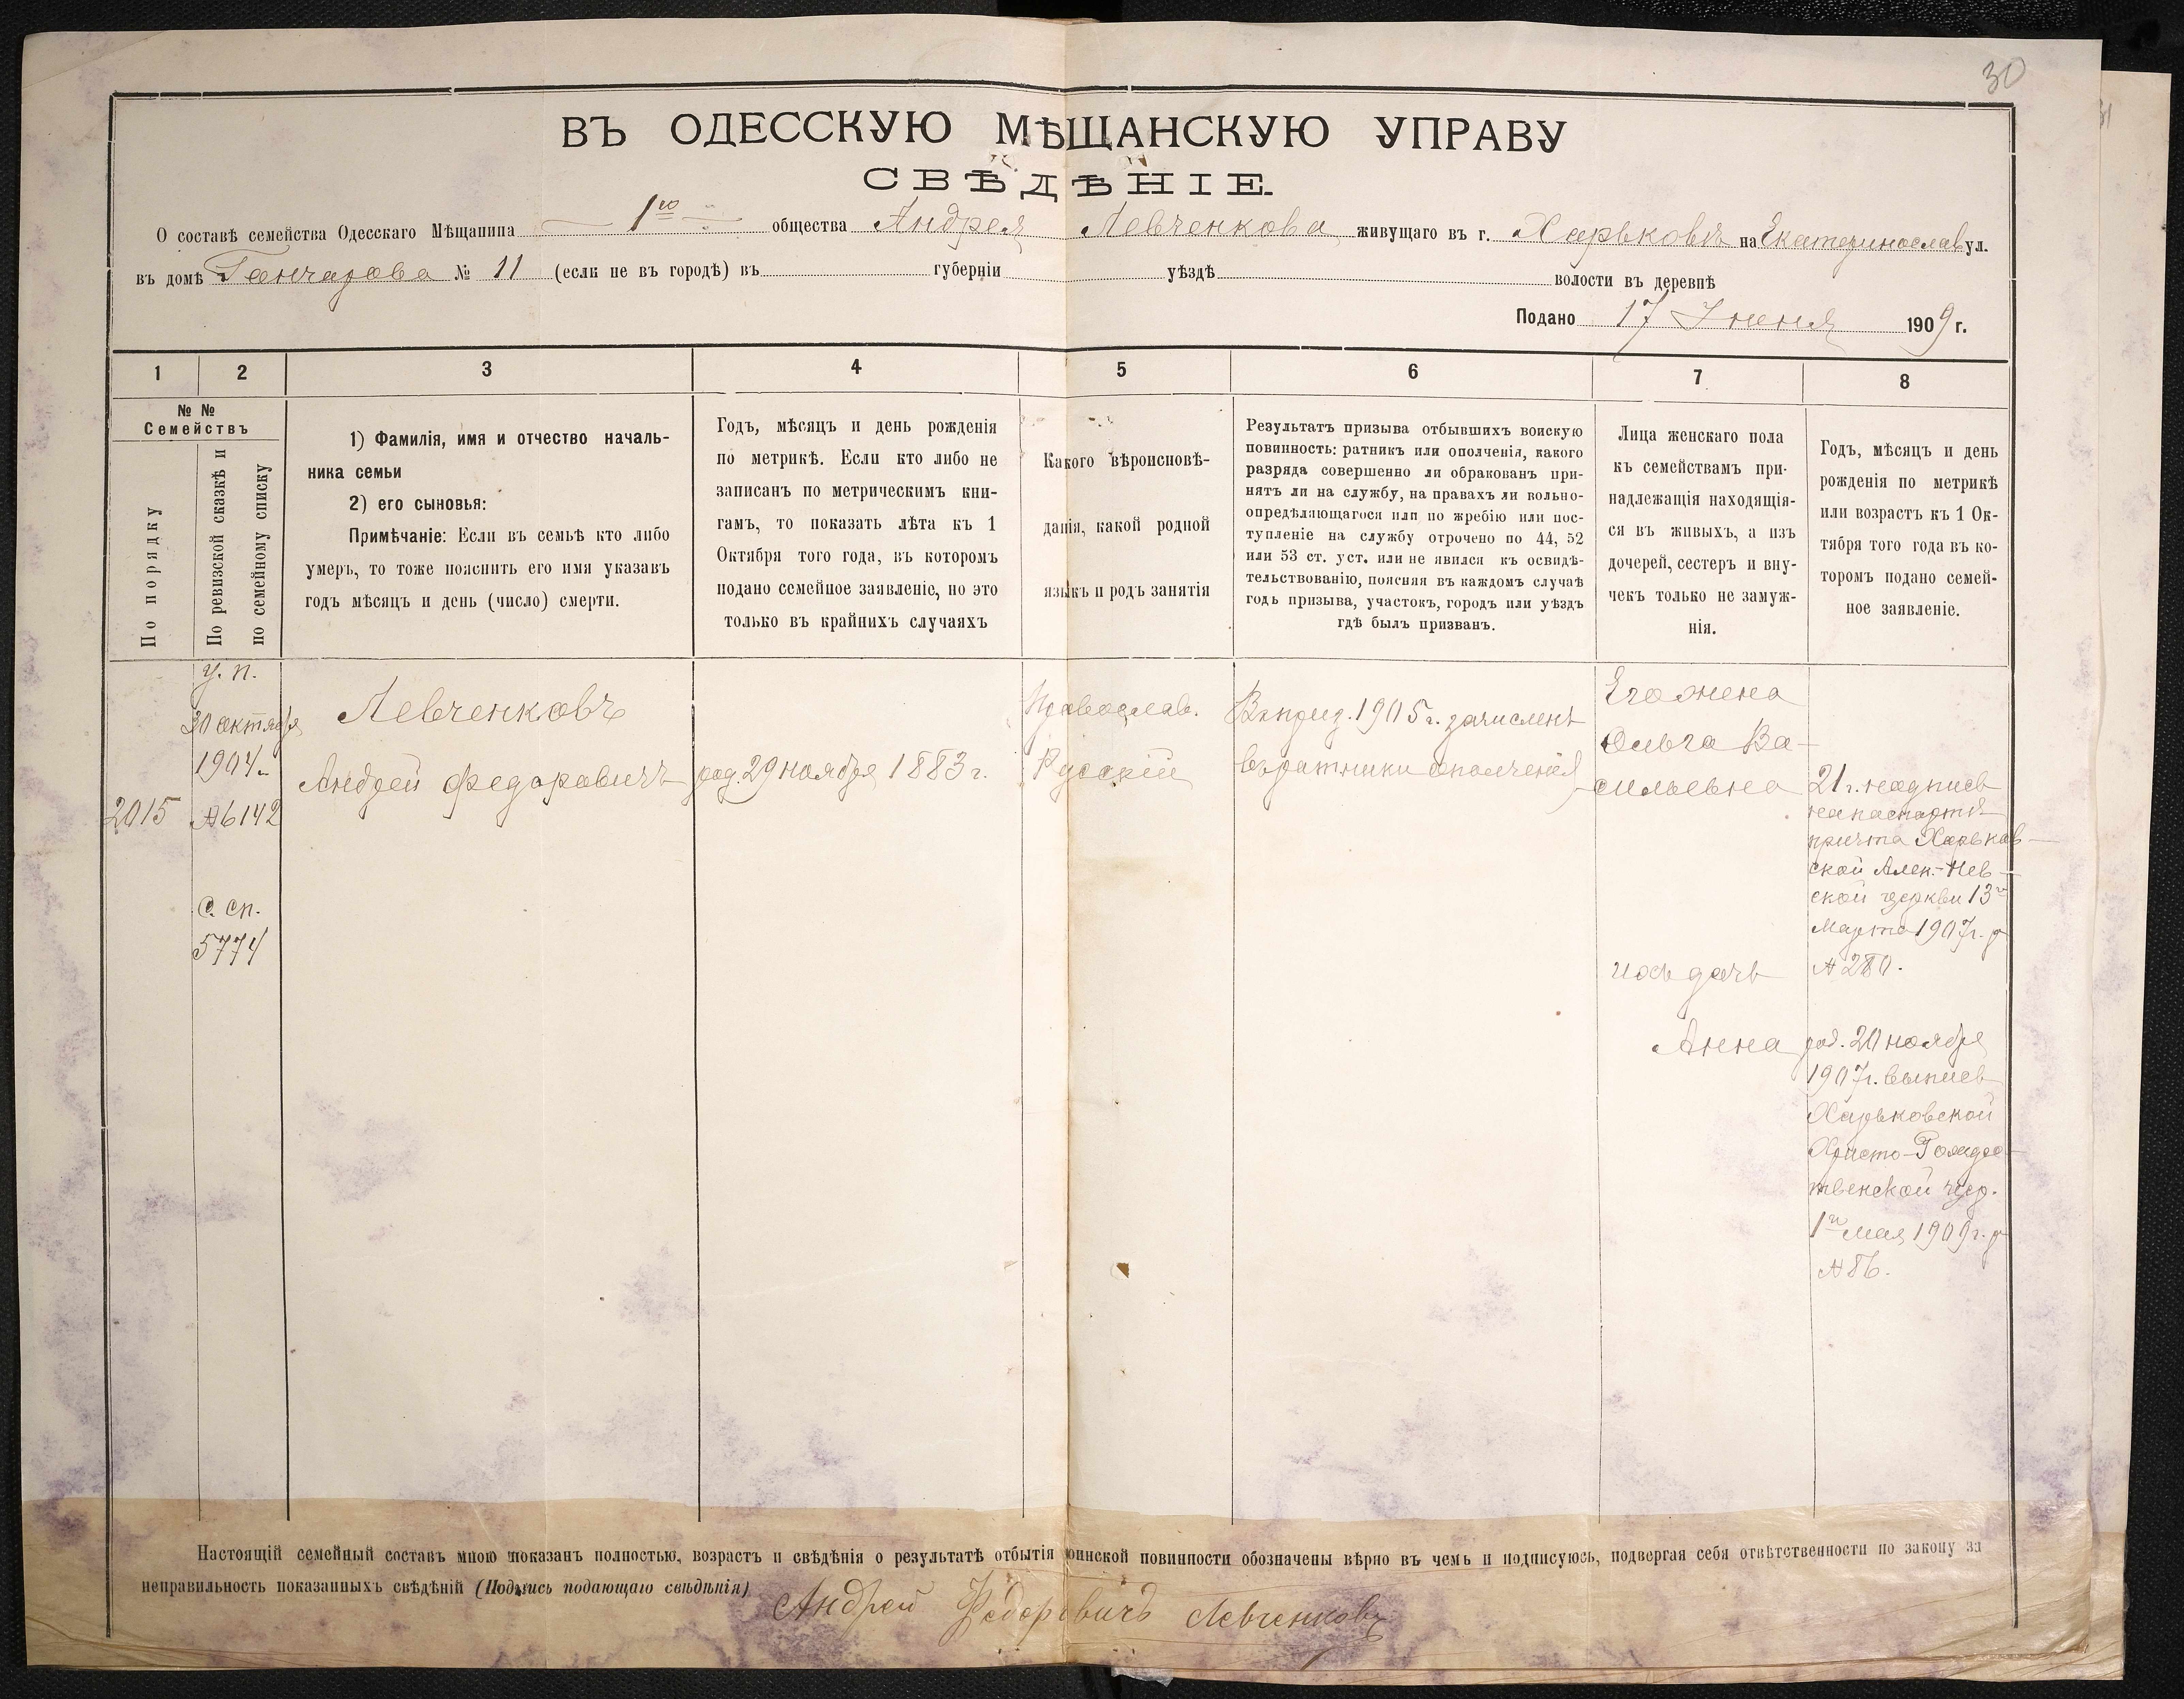 30
ВЪ ОДЕССКУЮ МѢЩАНСКУЮ УПРАВУ
СВѢДѢНІЕ.
О составѣ семейства Одесскаго Мѣщанина 1го общества Андрея Левченкова живущаго въ г. Харьковѣ на Екатеринослав ул.
въ домѣ Ганчарова № 11 (если не въ городѣ) въ губерніи уѣздѣ волости въ деревнѣ
Подано 17 Іюня 1909 г.
1 2 3 4 5 6 7 8
№ №
Семействъ
По порядку
По ревизской сказкѣ и
по семейному списку
1) Фамилія, имя и отчество началь-
ника семьи
2) его сыновья:
Примѣчаніе: Если въ семьѣ кто либо
умеръ, то тоже пояснить его имя указавъ
годъ мѣсяцъ и день (число) смерти.
Годъ, мѣсяцъ и день рожденія
по метрикѣ. Если кто либо не
записанъ по метрическимъ кни-
гамъ, то показать лѣта къ 1
Октября того года, въ которомъ
подано семейное заявленіе, но это
только въ крайнихъ случаяхъ
Какого вѣроисновѣ-
данія, какой родной
языкъ и родъ занятія
Результатъ призыва отбывшихъ воискую
повинность: ратникъ или ополченія, какого
разряда совершенно ли обракованъ при-
нятъ ли на службу, на правахъ ли вольно-
опредѣляющагося или по жребію или пос-
тупленіе на службу отрочено по 44, 52
или 53 ст. уст. или не явился къ освидѣ-
тельствованію, поясняя въ каждомъ случаѣ
годъ призыва, участокъ, городъ или уѣздъ
гдѣ былъ призванъ.
Лица женскаго пола
къ семействамъ при-
надлежащія находящія-
ся въ живыхъ, а изъ
дочерей, сестеръ и вну-
чекъ только не замуж-
нія.
Годъ, мѣсяцъ и день
рожденія по метрикѣ
или возрастъ къ 1 Ок-
тября того года въ ко-
торомъ подано семей-
ное заявленіе.
2015
у. п.
30 октября
1904 г.
№ 6142
С. сп.
5774
Левченковъ
Андрей Федоровичъ
род. 29 ноября 1883 г.
Православ.
Русскій
Въ приз. 1905 г. зачисленъ
въ ратники ополченія
Его жена
Ольга Ва-
сильевна
21 г. надпись
на паспортѣ
причта Харьков-
ской Алек.-Нев-
ской церкви 13го
Марта 1907 г. з
№ 280.
ихъ дочь
Анна
род. 20 ноября
1907 г. выпись
Харьковской
Христо-Рождес-
твенской цер.
1го мая 1909 г. з
№ 86.
Настоящій семейный составъ мною показанъ полностью, возрастъ и свѣдѣнія о результатѣ отбытія воинской повинности обозначены вѣрно въ чемъ и подписуюсь, подвергая себя отвѣтственности по закону за
неправильность показанныхъ свѣдѣній (Подпись подающаго свѣдѣнія)
Андрей Федоровичъ Левченковъ